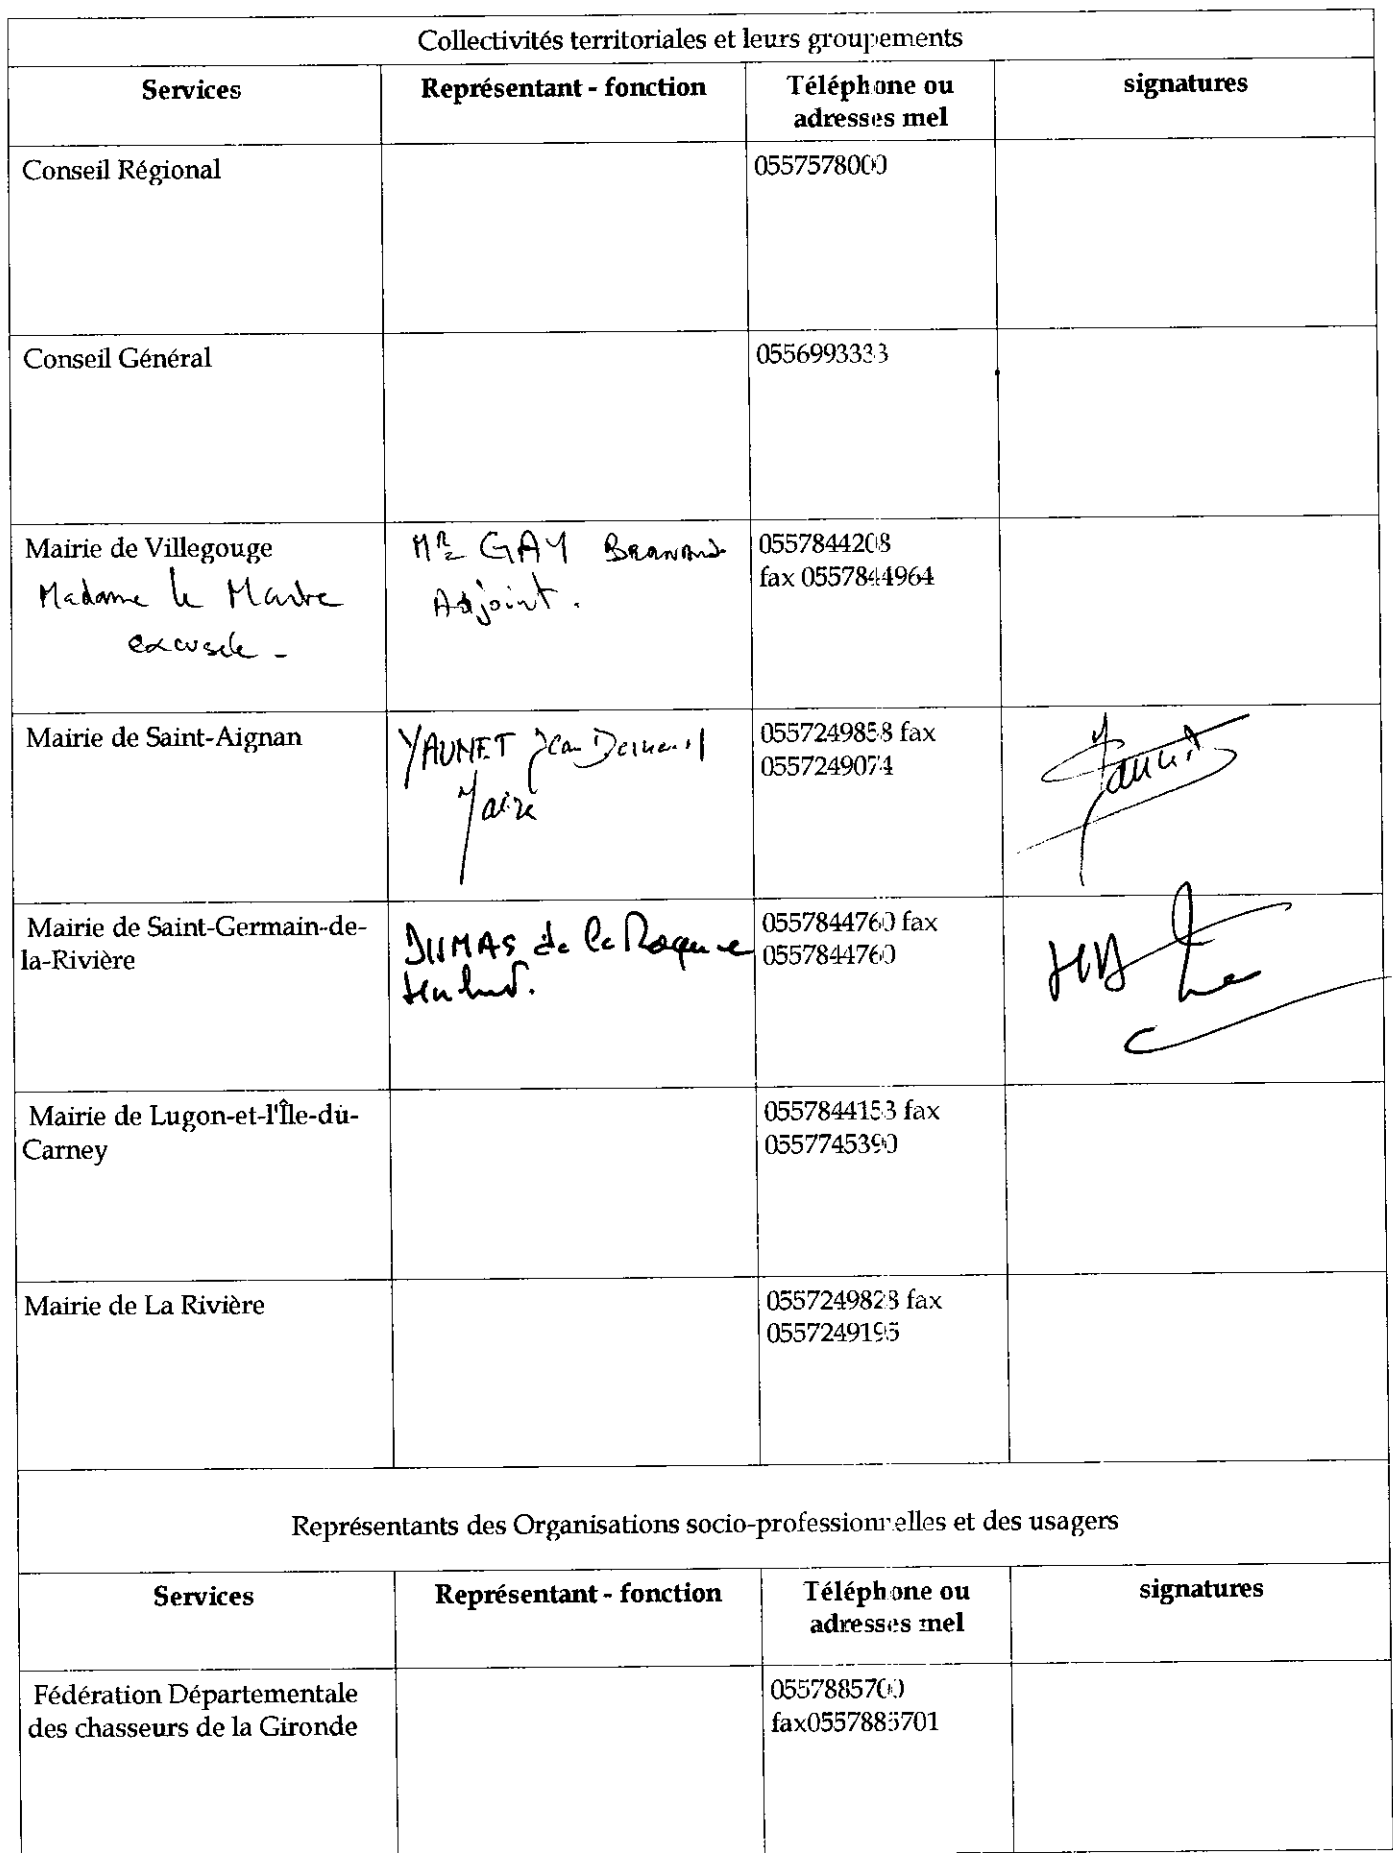 Collectivités territoriales et leurs groupements
Services
Représentant - fonction
Téléphone ou
adresses mel
signatures
Conseil Régional
0557578000
Conseil Général
0556993333
Mairie de Villegouge
Madame le Maire
excusée -
Mr GAY
Adjoint.
0557844208
fax 0557844964
Mairie de Saint-Aignan
YAUNET Jean
Maire
0557249858 fax
0557249074
Mairie de Saint-Germain-de-
la-Rivière
DUMAS de la Roque
0557844760 fax
0557844760
HD
Mairie de Lugon-et-l'Île-du-
Carney
0557844153 fax
0557745390
Mairie de La Rivière
0557249828 fax
0557249195
Représentants des Organisations socio-professionnelles et des usagers
Services
Représentant - fonction
Téléphone ou
adresses mel
signatures
Fédération Départementale
des chasseurs de la Gironde
0557885700
fax0557885701